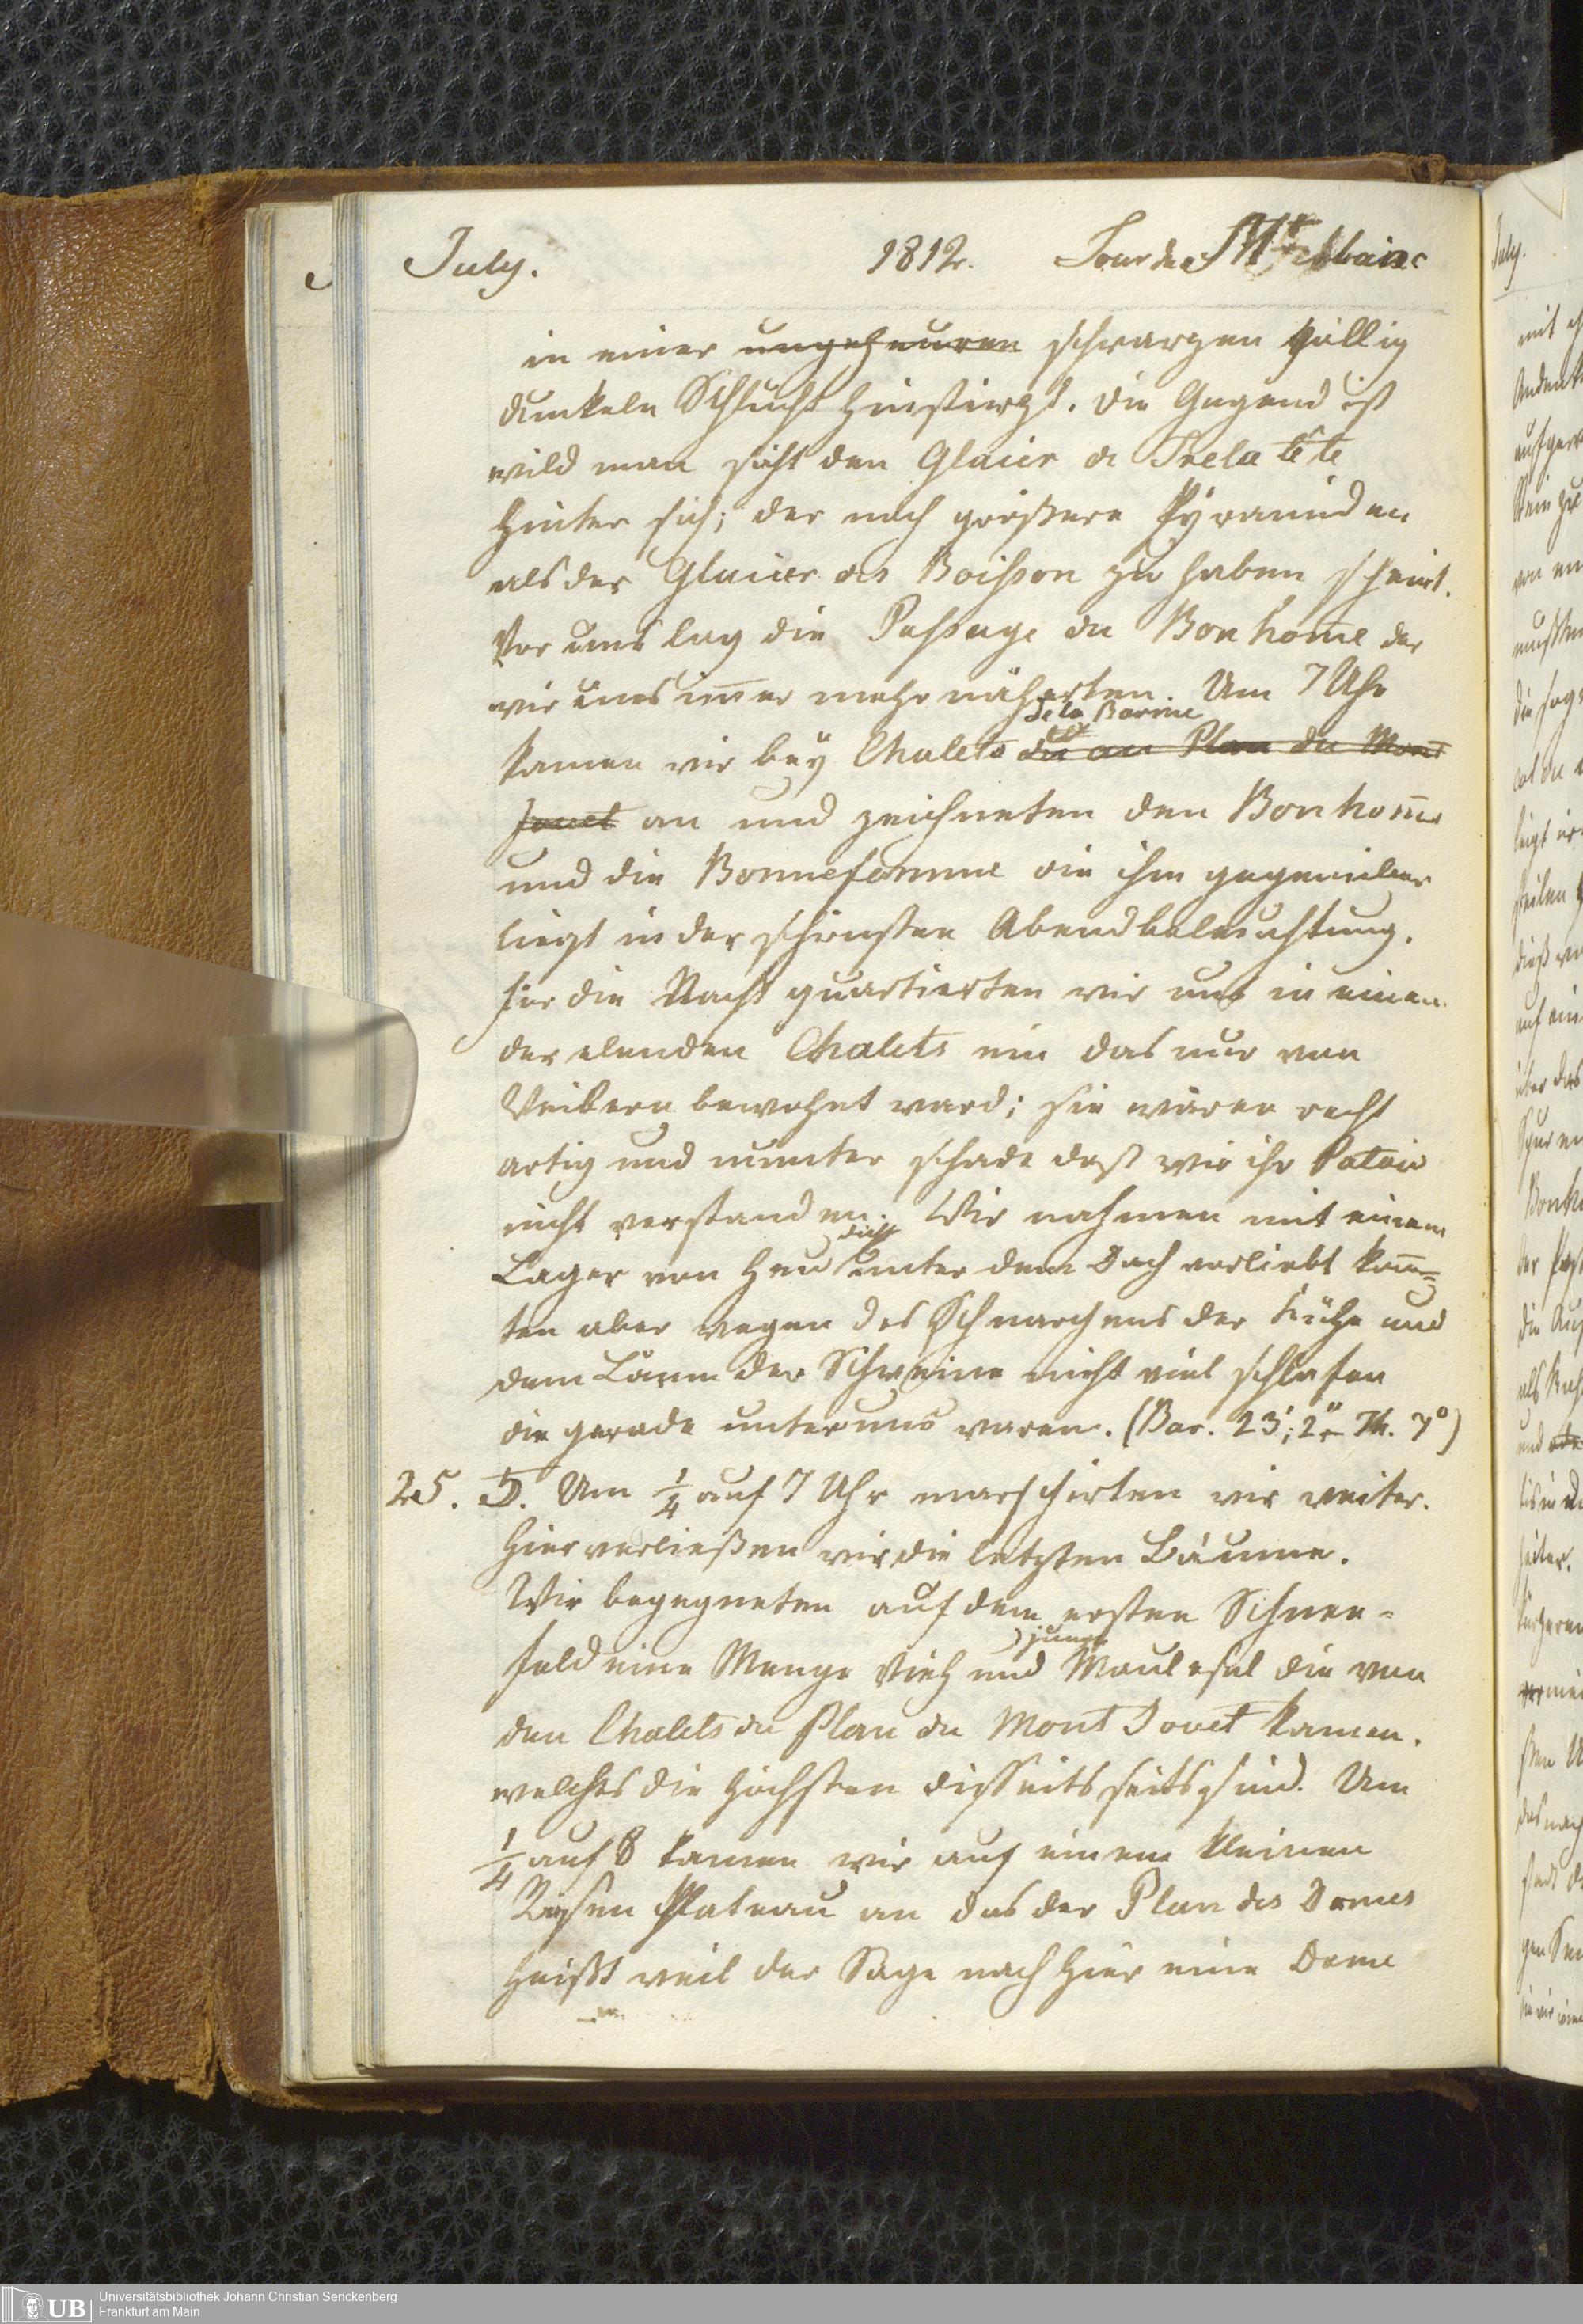 July. 1812. Tour de Mt
in einer ungeheuren schwarzen völlig
dunkeln Schlucht hinstürzt. Die Gegend ist
wild man sieht den Glacier de Trela tête
hinter sich; der noch größere Pyramiden
als der Glacier des Boisson zu haben scheint.
Vor uns lag die Passage du Bonhom̄e der
wir uns im̄er mehr näherten. Um 7 Uhr
de la Barme
kamen wir bey Chalets du au Plan du Mont
Jouet an und zeichneten den Bonhom̄e
und die Bonnefemme die ihm gegenüber
liegt in der schönsten Abendbeleuchtung.
Für die Nacht quartierten wir uns in einem
der elenden Chalets ein das nur von
Weibern bewohnt ward; sie waren recht
artig und munter schade daß wir ihr Patois
nicht verstanden. Wir nahmen mit einem
dicht
Lager von Heu unter dem Dach vorliebt kon̄=
ten aber wegen des Schnarchens der Kühe und
dem Lärm der Schweine nicht viel schlafen
die gerade unter uns waren. (Bar. 23', 2" Th. 7°)
25. ♄. Um 1/4 auf 7 Uhr marschirten wir weiter.
Hier verließen wir die letzten Bäume.
Wir begegneten auf dem ersten Schnee-
junge
feld eine Menge Vieh und Maulesel die von
den Chalets du Plan du Mont Jovet kamen.
welches die höchsten dißseits seits sind. Um
1/4 auf 8 kamen wir auf einem kleinen
Rasen Plateau an das der Plan des Dames
heißt weil der Sage nach hier eine Dame
July.
Universitätsbibliothek Johann Christian Senckenberg
UB Frankfurt am Main